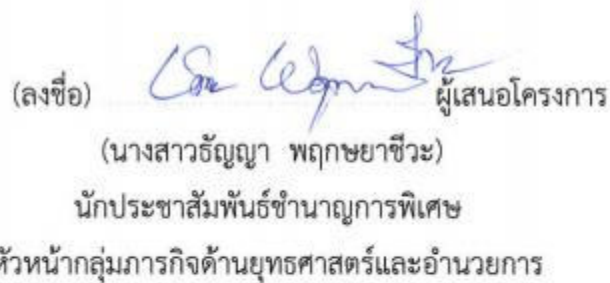 (ลงชื่อ) ผู้เสนอโครงการ
(นางสาวธัญญา พฤกษยาชีวะ)
นักประชาสัมพันธ์ชำนาญการพิเศษ
หัวหน้ากลุ่มภารกิจด้านยุทธศาสตร์และอำนวยการ